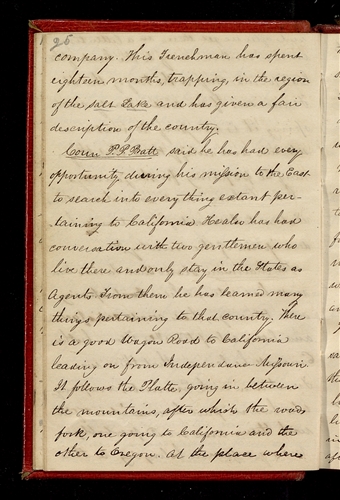 96
company. This Frenchman has spent
eighteen months, trapping, in the region
of the Salt Lake and has given a fair
description of the country.
Coun P. P. Pratt said he has had every
opportunity, during his mission to the East
to search into every thing extant per-
-taining to California He also has had
conversation with two gentlemen who
live there and only stay in the States as
Agents. From them he has learned many
things pertaining to that country. There
is a good Wagon Road to California
leading on from Independance Missouri.
It follows the Platte, going in between
the mountains, after which the roads
fork, one going to California and the
other to Oregon. At the place where